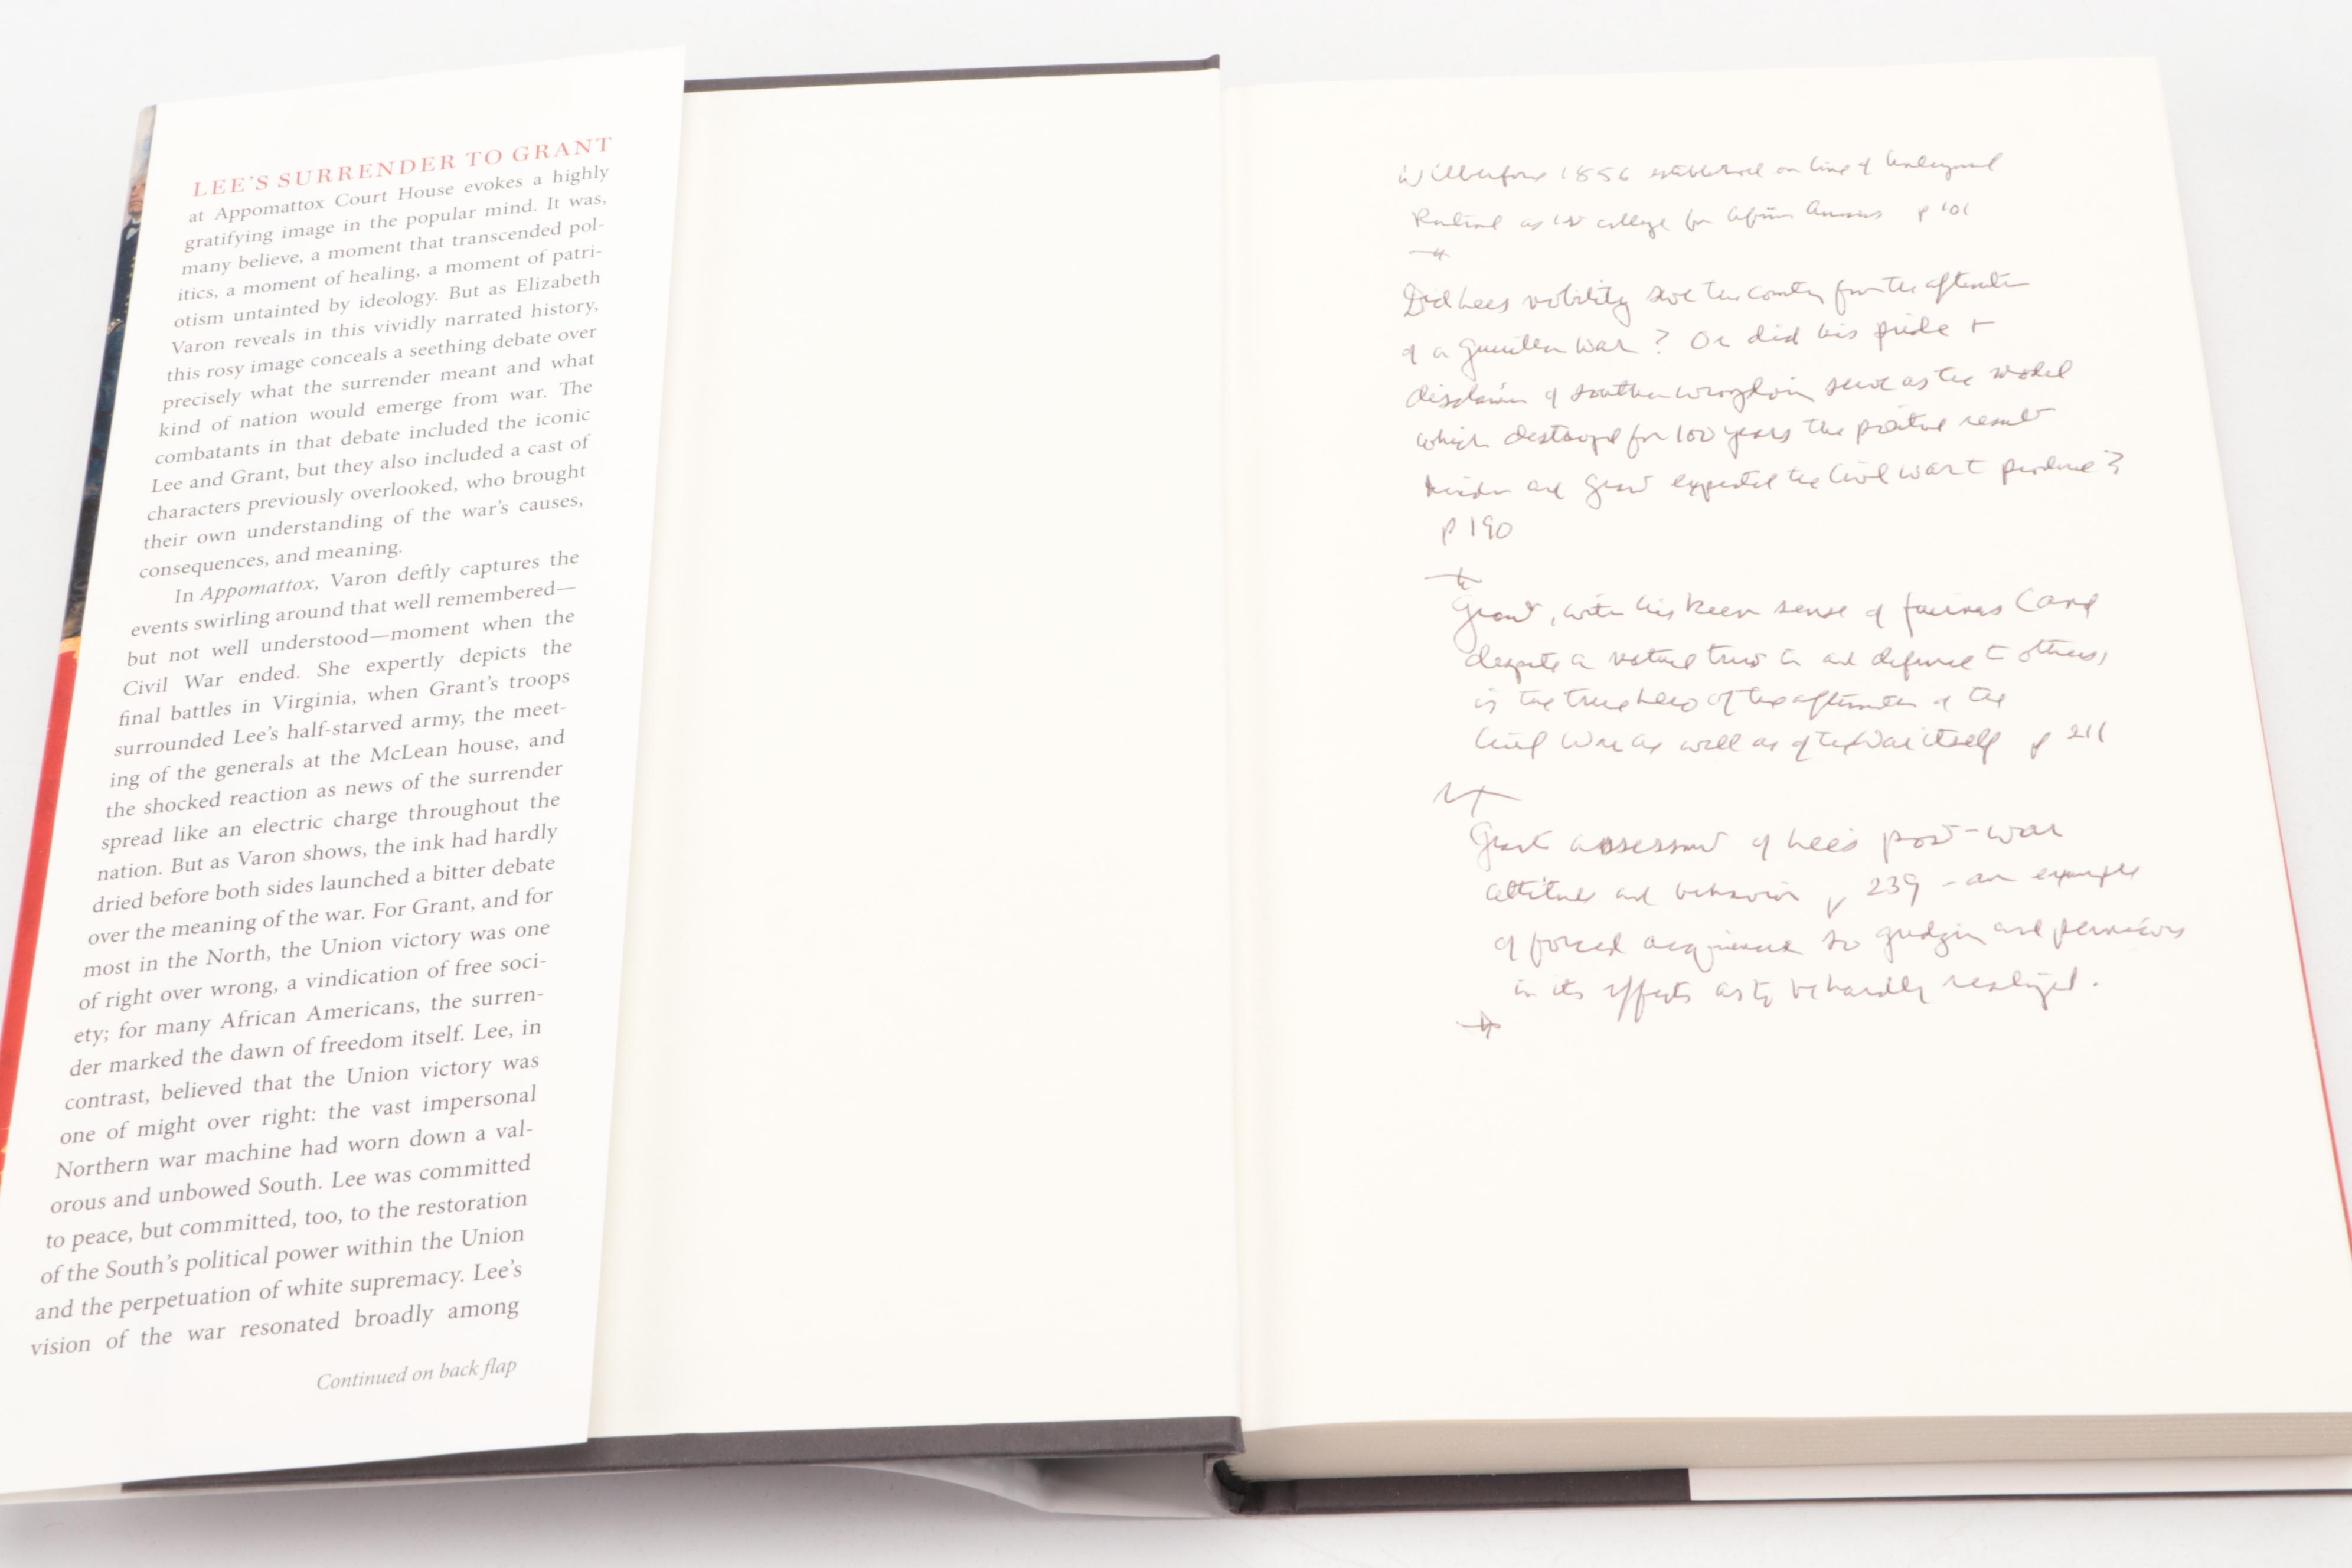 LEE'S SURRENDER TO GRANT
at Appomattox Court House evokes a highly
gratifying image in the popular mind. It was,
many believe, a moment that transcended pol-
itics, a moment of healing, a moment of patri-
otism untainted by ideology. But as Elizabeth
Varon reveals in this vividly narrated history,
this rosy image conceals a seething debate over
precisely what the surrender meant and what
kind of nation would emerge from war. The
combatants in that debate included the iconic
Lee and Grant, but they also included a cast of
characters previously overlooked, who brought
their own understanding of the war's causes,
consequences, and meaning.
In Appomattox, Varon deftly captures the
events swirling around that well remembered—
but not well understood—moment when the
Civil War ended. She expertly depicts the
final battles in Virginia, when Grant's troops
surrounded Lee's half-starved army, the meet-
ing of the generals at the McLean house, and
the shocked reaction as news of the surrender
spread like an electric charge throughout the
nation. But as Varon shows, the ink had hardly
dried before both sides launched a bitter debate
over the meaning of the war. For Grant, and for
most in the North, the Union victory was one
of right over wrong, a vindication of free soci-
ety; for many African Americans, the surren-
der marked the dawn of freedom itself. Lee, in
contrast, believed that the Union victory was
one of might over right: the vast impersonal
Northern war machine had worn down a val-
orous and unbowed South. Lee was committed
to peace, but committed, too, to the restoration
of the South's political power within the Union
and the perpetuation of white supremacy. Lee's
vision of the war resonated broadly among
Continued on back flap
Wilberforce 1856 established on line of Underground
Railroad as 1st college for African Americans p 101
Did Lees nobility save the country from the aftermath
of a guerilla war? Or did his pride +
disdain of southern wrongdoing serve as the model
which destroyed for 100 years the positive result
Lincoln and Grant expected the Civil War to produce?
p 190
Grant, with his keen sense of fairness (and
despite a natural and deference to others)
is the true hero of the aftermath of the
Civil War as well as of the War itself p 211
Grant's assessment of Lee's post-war
attitude and behavior p 239 - an example
of forced acquiescence so grudging and pernicious
in its effects as to be hardly realized.